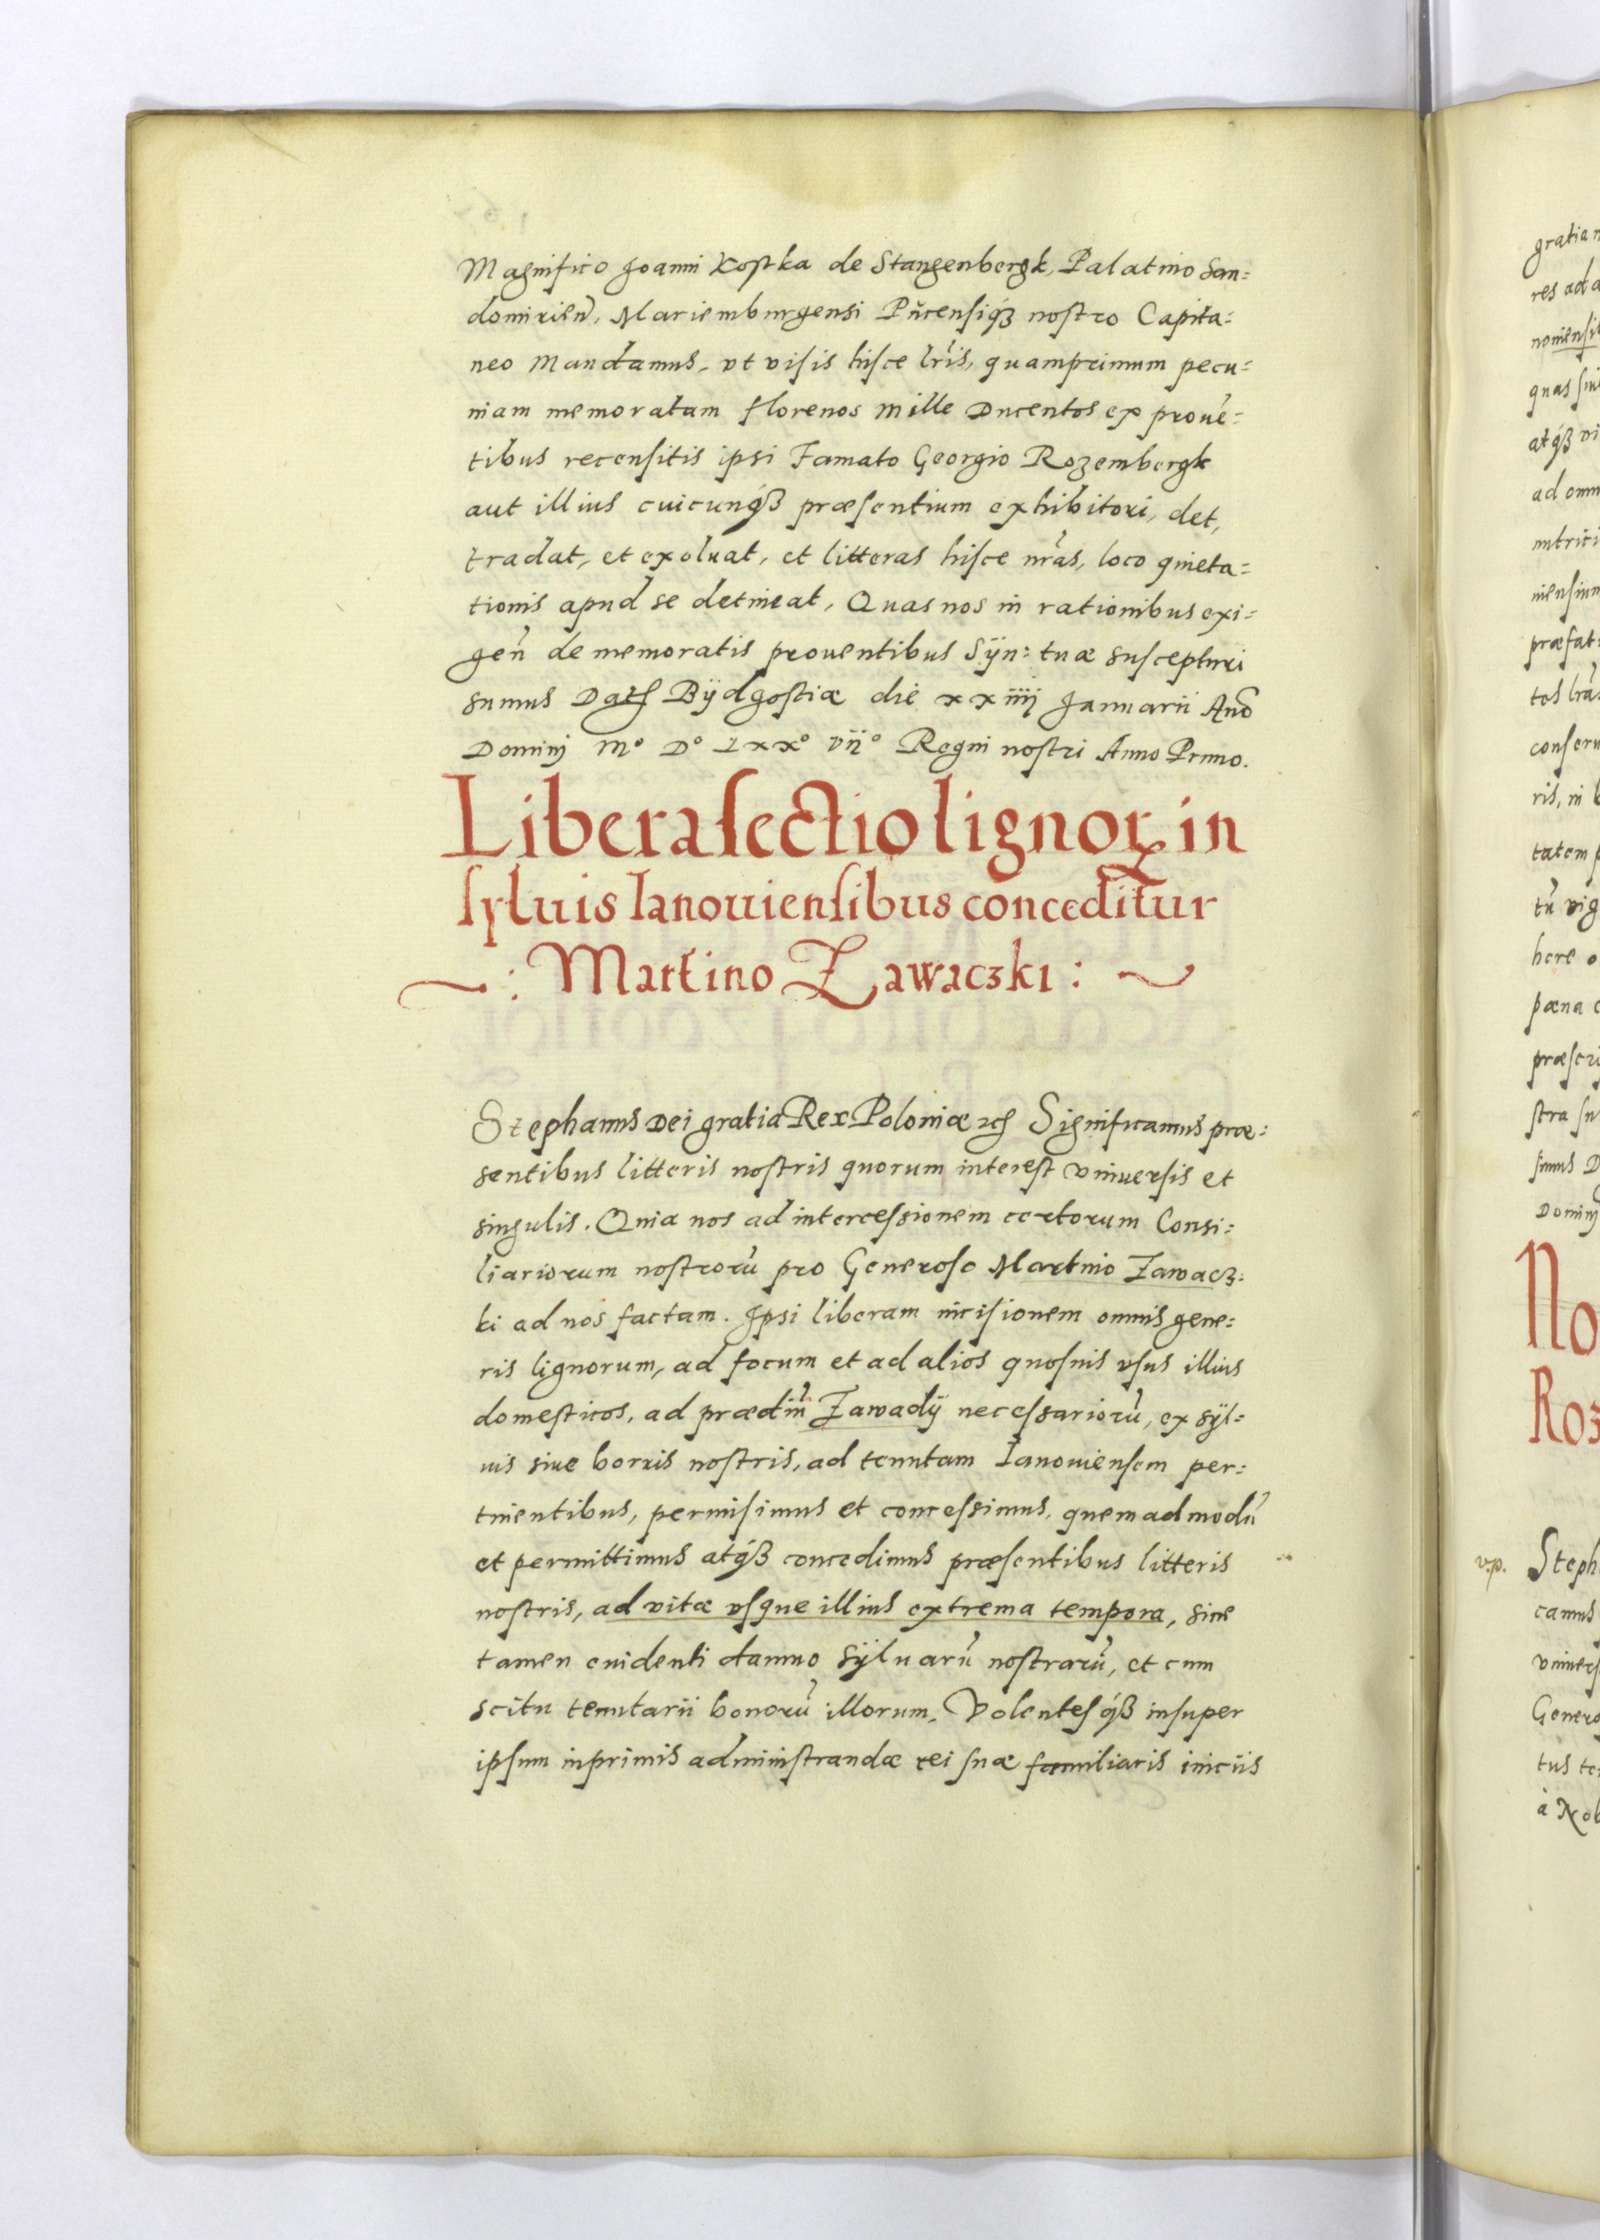 Magnifico Joanni Kostka de Stangenbergk, Palatino San=
domirien̄, Mariemburgensi Pn̄censiq́ꝫ nostro Capita=
neo Mandamus, vt visis hisce lr̄is, quamprimum pecu=
niam memoratam florenos Mille Ducentos ex prouē=
tibus recensitis ipsi Famato Georgio Rozembergk
aut illius cuicunq́ꝫ præsentium exhibitori, det,
tradat, et exoluat, et litteras hisce nr̄as, loco quieta=
tionis apud se detineat, Quas nos in rationibus exi=
gen̄ de memoratis prouentibus Sÿn: tuæ suscepturi
sumus Datꝭ Bÿdgostiæ die xxiiij Januarii Anō
Dominj M° D° Lxx° vii° Regni nostri Anno Primo.
Libera sectio lignoꝝ in
syluis Ianouiensibus conceditur
~: Martino Zawaczki : ~
Stephanus Dei gratia Rex Poloniæ ꝛcꝭ Significamus præ=
sentibus litteris nostris quorum interest vniuersis et
singulis. Quia nos ad intercessionem certorum Consi=
liariorum nostrorū pro Generoso Martino Zawacz=
ki ad nos factam. Ipsi liberam incisionem omnis gene=
ris lignorum, ad focum et ad alios quosuis vsus illius
domesticos, ad prædiū Zawadÿ necessariorū, ex sÿl=
uis siue borris nostris, ad tenutam Ianouiensem per=
tinentibus, permisimus et concessimus, quemadmodū
et permittimus atq́ꝫ concedimus præsentibus litteris
nostris, ad vitæ vsque illius extrema tempora, sine
tamen euidenti damno sÿluarū nostrarū, et cum
scitu tenutarii bonorū illorum, Volentesq́ꝫ insuper
ipsum inprimis administrandæ rei suæ familiaris iniciis
gratia
res ad a
quas
atq́ꝫ
ad omn
præfat
conseru
ris, in
tatem
tū vig
bere
pæna
præscri
stra
Dominj
No
Roz
v.p. Steph
camus
vniuers
Genero
tus
à Nob